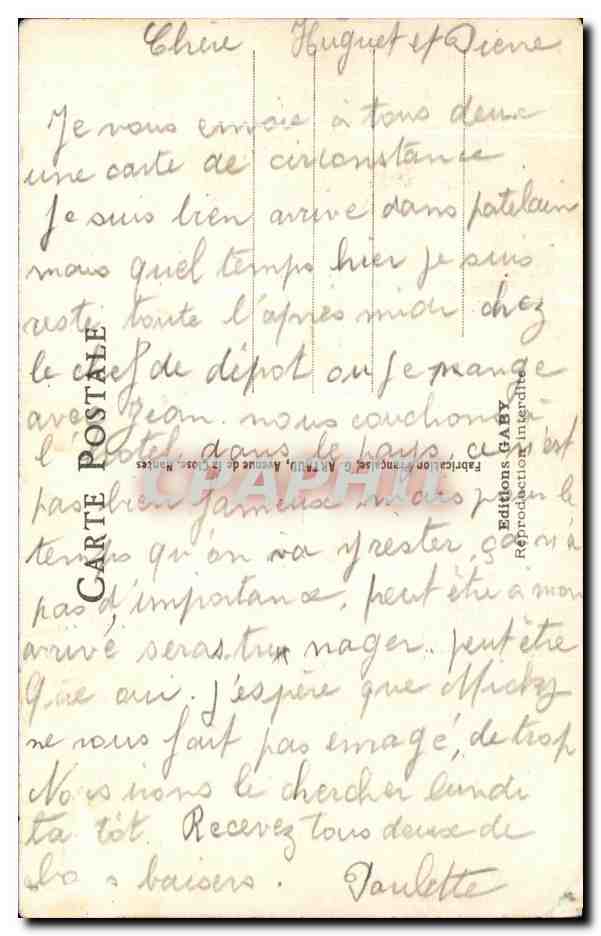 Chère Huguet et Pierre
Je vous envoie à tous deux
une carte de circonstance
Je suis bien arrivé dans patelain
mais quel temps hier je suis
resté toute l'après midi chez
le chef de dépot ou je mange
avec Jean. nous couchons à
l'hotel dans le pays, ce n'est
pas bien fameux mais pour le
temps qu'on va y rester, ça n'a
pas d'importance, peut être à mon
arrivé seras tu nager. peut être
que oui. J'espère que Micky
ne vous fait pas enragé, de trop
Nous irons le chercher lundi
ta tôt. Recevez tous deux de
bons baisers. Paulette
CARTE POSTALE
Fabrication Française, G. ARTAUD, Avenue de la Close, Nantes
Editions GABY
Reproduction interdite
CPAPHIL